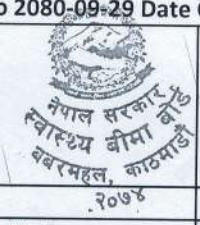 2080-09-29 Date
नेपाल सरकार
स्वास्थ्य बीमा बोर्ड
बबरमहल, काठमाडौं
२०७४